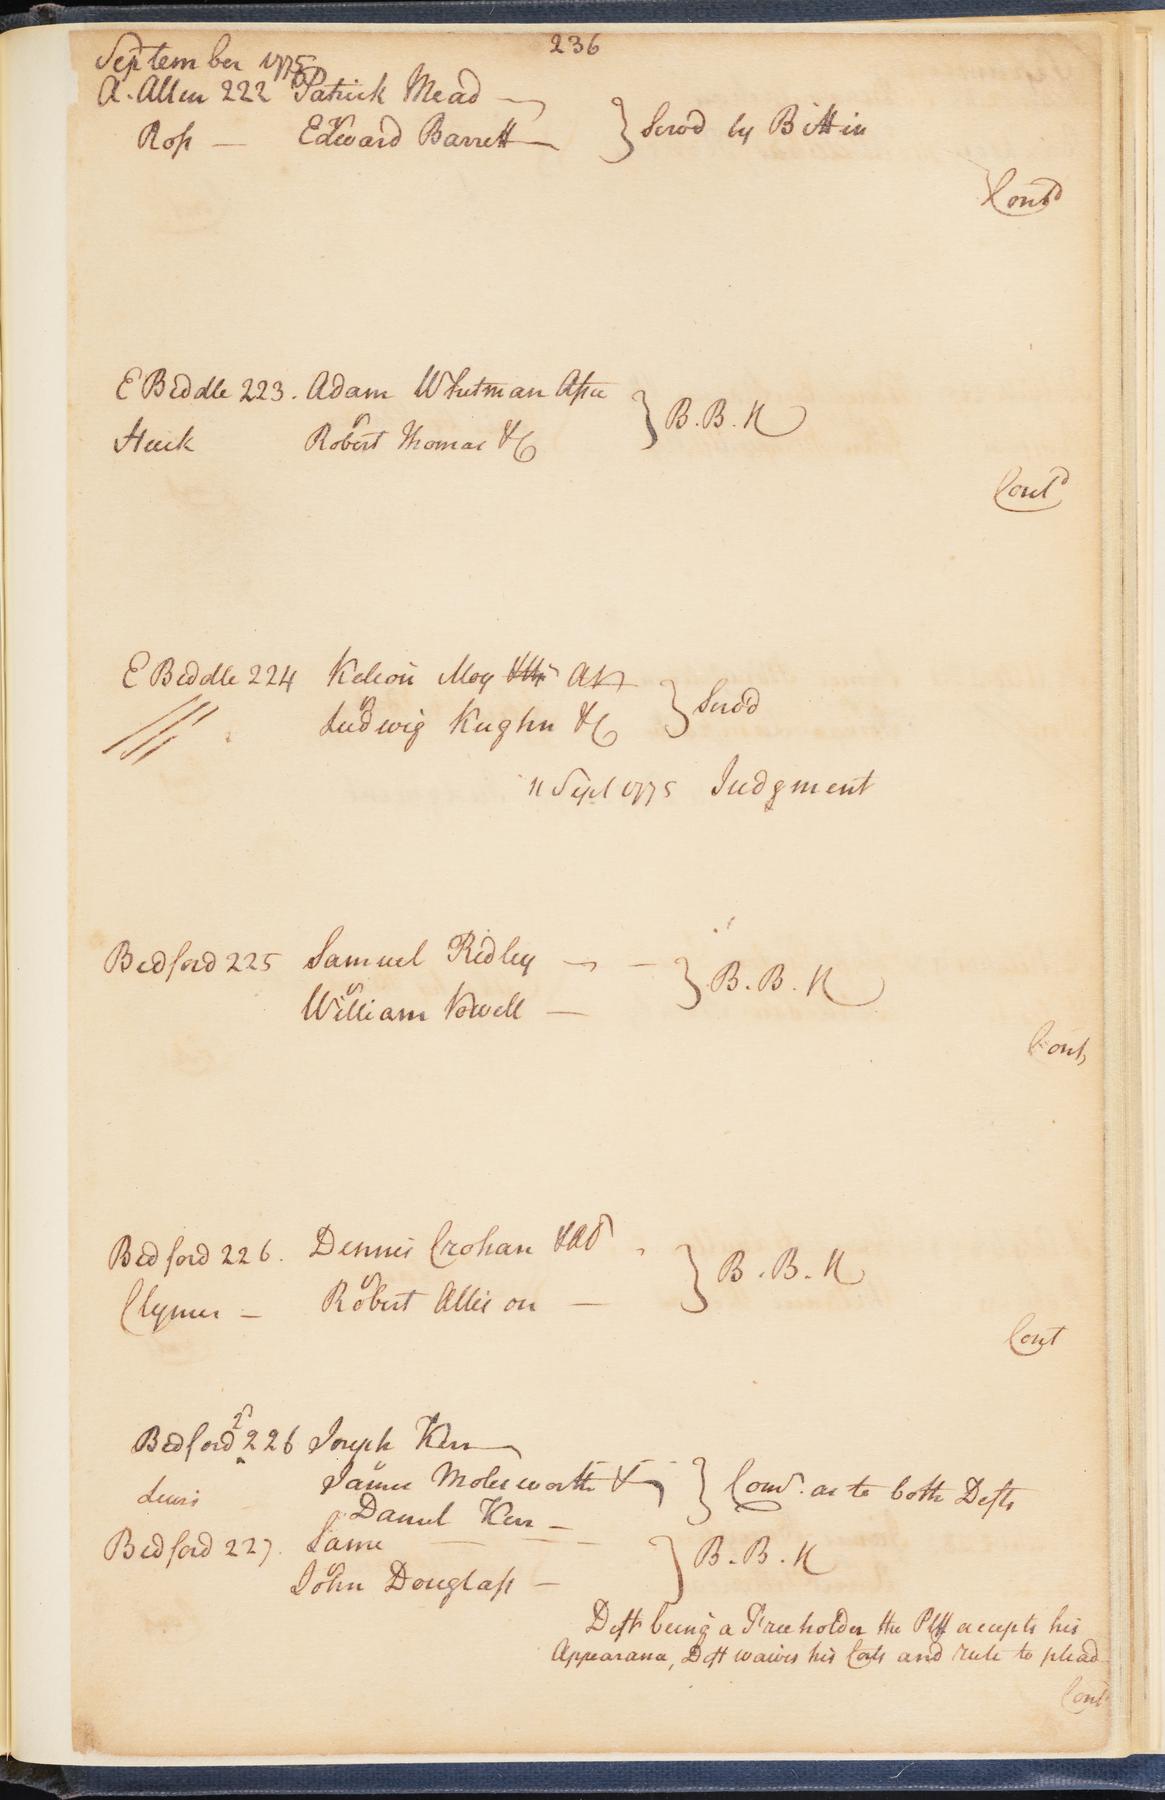 236
September 1775
A. Allen 222 Patrick Mead
Ross — Edward Barrett — } Servd by Bittin
Contd
E Biddle 223. Adam Whitman Assee
v
Huck Robert Thomas &C } B. B. N
Contd
E Biddle 224 Moy
v
Ludwig Kughn &C } Servd
11 Sept 1775 Judgment
Bedford 225 Samuel Ridley —
v
William Nowell — } B. B. N
Cont
Bedford 226. Dennis Crohan
v
Clymer — Robert Allison — } B. B. N
Cont
Bedford 226 Joseph Kerr
v
Lewis James Molesworth & } Cont. as to both Defts
Daniel Kerr —
Bedford 227. Same — — —
v
John Douglass — } B. B. N
Deft being a Freeholder the Pltf accepts his
Appearance, Deft waives his Costs and rule to plead
Cont